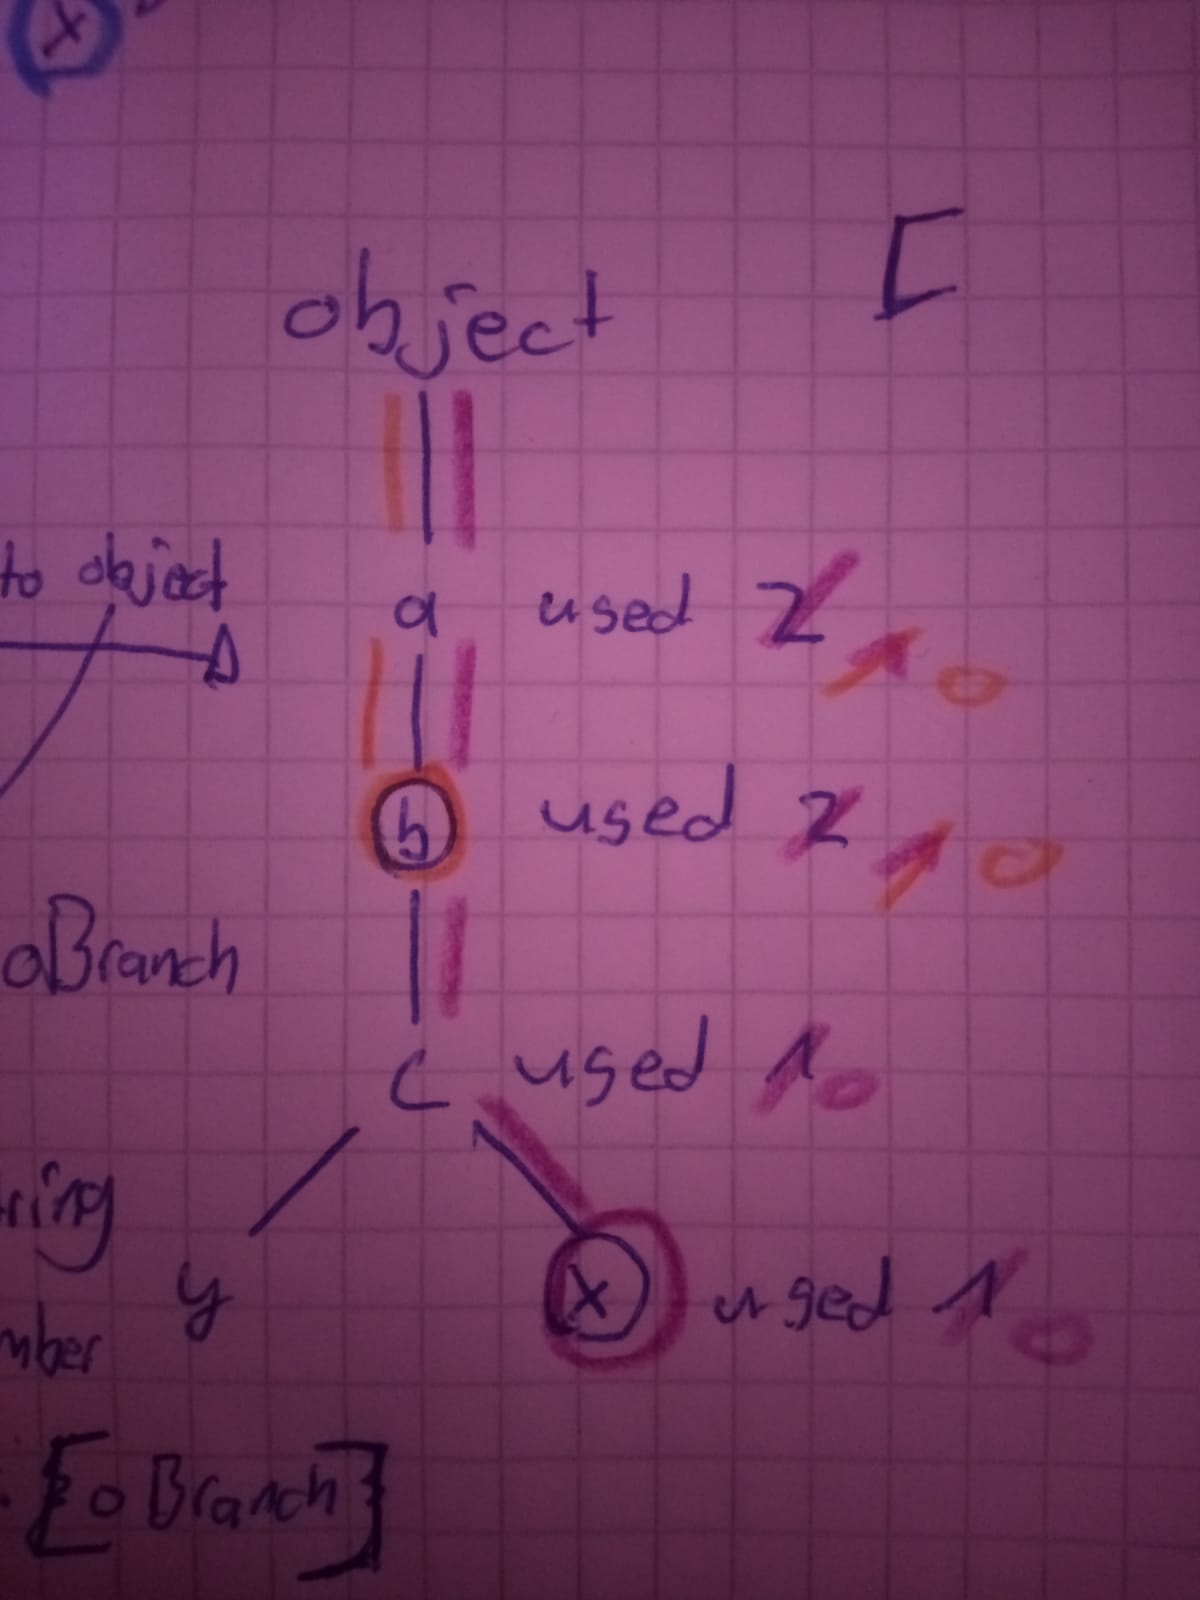 x
[
object
to object
a used 2 1 0
b used 2 1 0
oBranch
c used 1 0
y
x used 1 0
[oBranch]